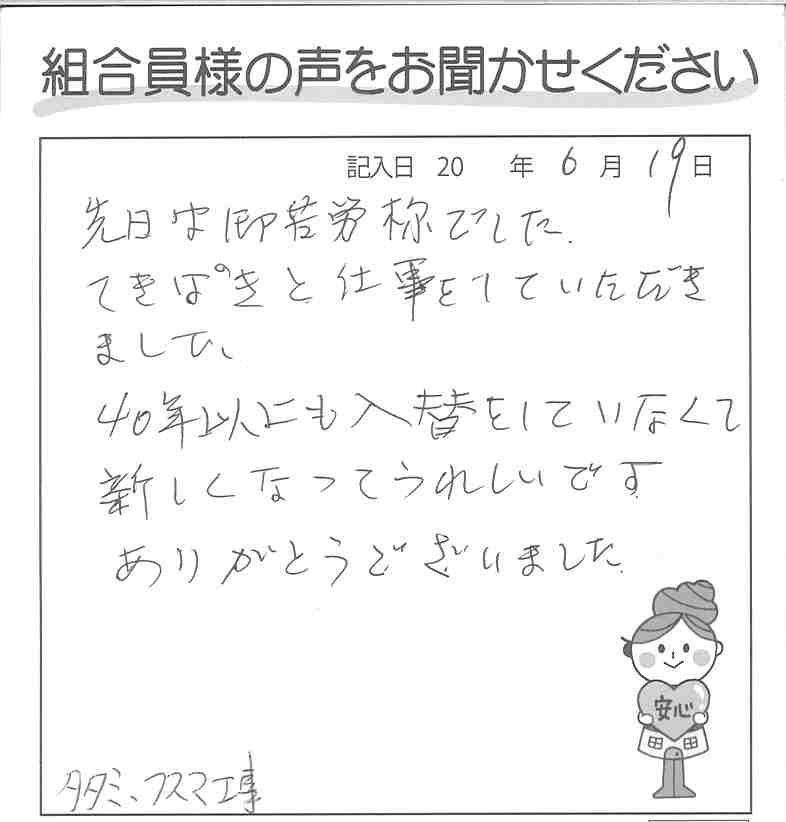 組合員様の声をお聞かせください
記入日 20 年 6月 19日
先日は御苦労様でした.
てきぱきと仕事をしていただき
まして、
40年以上にも入替をしていなくて
新しくなってうれしいです
ありがとうございました.
安心
タタミ、フスマ工事